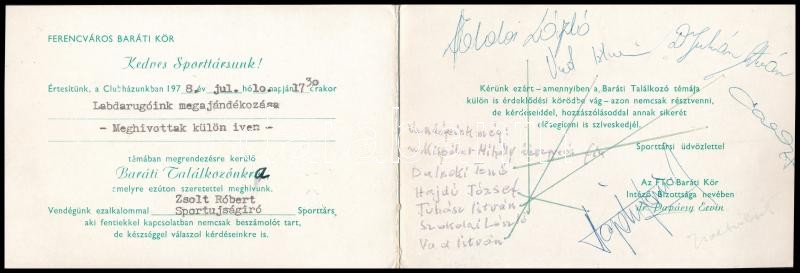 FERENCVÁROS BARÁTI KÖR
Kedves Sporttársunk!
Értesítünk, a Clubházunkban 1978. év jul. hó 10. napján 17³⁰ órakor
Labdarugóink megajándékozása
- Meghivottak külön iven -
témában megrendezésre kerülő
Baráti Találkozónkra
amelyre ezúton szeretettel meghívunk.
Zsolt Róbert
Vendégünk ezalkalommal Sportujságiró Sporttárs,
aki fentiekkel kapcsolatban nemcsak beszámolót tart,
de készséggel válaszol kérdéseinkre is.
Kérünk ezért – amennyiben a Baráti Találkozó témája
külön is érdeklődési körödbe vág – azon nemcsak résztvenni,
de kérdéseiddel, hozzászólásoddal annak sikerét
elősegíteni is szíveskedjél.
Vendégeink még:
Kispéter Mihály
Dalnoki Jenő
Hajdú József
Juhász István
Szokolai László
Vad István
Sporttársi üdvözlettel
Az FTC Baráti Kör
Intéző Bizottsága nevében